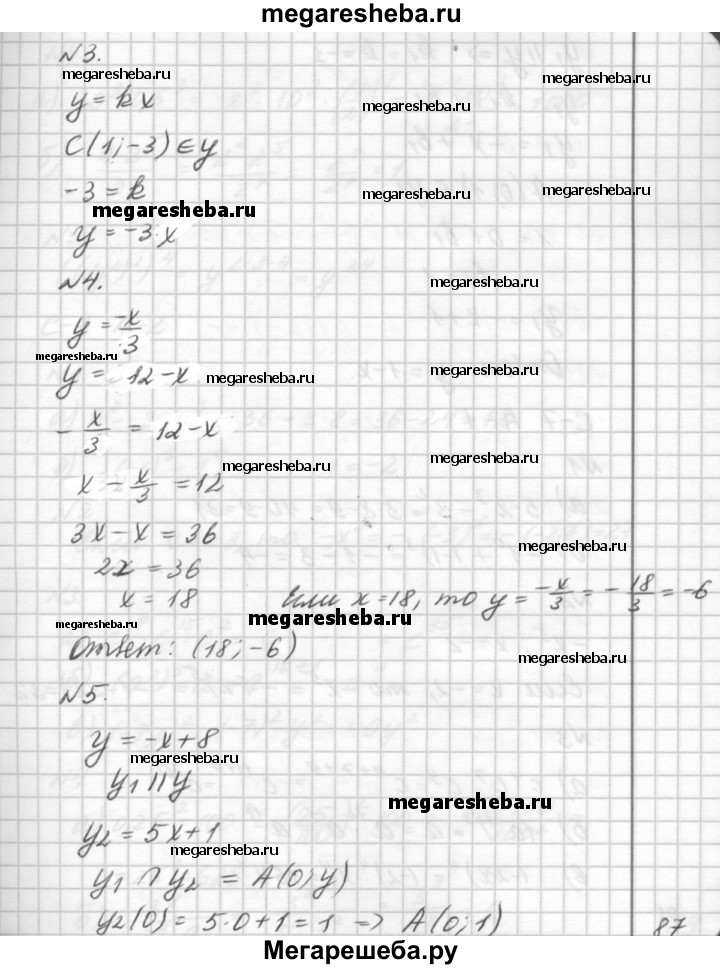 megaresheba.ru
№3.
megaresheba.ru
y = kx
megaresheba.ru
C(1; -3) ∈ y
-3 = k
megaresheba.ru
megaresheba.ru
megaresheba.ru
y = -3·x
№4.
megaresheba.ru
y = -x/3
megaresheba.ru
megaresheba.ru
y = 12 - x
megaresheba.ru
megaresheba.ru
- x/3 = 12 - x
megaresheba.ru
megaresheba.ru
x - x/3 = 12
3x - x = 36
megaresheba.ru
2x = 36
x = 18 Если x = 18, то y = -x/3 = - 18/3 = -6
megaresheba.ru
megaresheba.ru
Ответ: (18; -6)
megaresheba.ru
№5.
y = -x + 8
megaresheba.ru
y1 || y
megaresheba.ru
y2 = 5x + 1
megaresheba.ru
y1 ∩ y2 = A(0; y)
y2(0) = 5·0 + 1 = 1 => A(0; 1)
87
Мегарешеба.ру